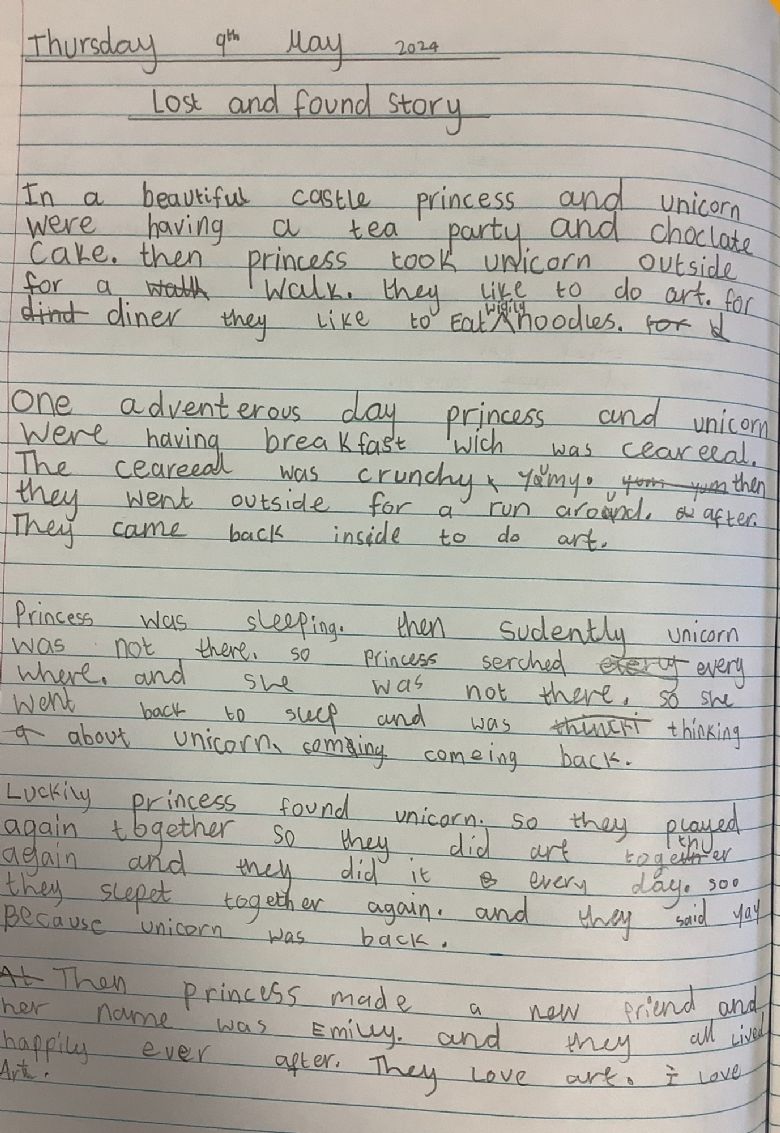 Thursday 9th May 2024
Lost and found story
In a beautiful castle princess and unicorn
were having a tea party and choclate
cake. then princess took unicorn outside
for a walk. they like to do art. for
diner they like to Eat wigily noodles. for d
One adventerous day princess and unicorn
were having breakfast wich was ceareeal.
The ceareeal was crunchy yumy. yum yum then
they went outside for a run around. after.
They came back inside to do art.
Princess was sleeping. then sudently unicorn
was not there. so Princess serched every
where. and she was not there. so she
went back to sleep and was thinking
about unicorn comeing back.
Luckily princess found unicorn. so they played
again together so they did art together
again and they did it every day. soo
they slepet together again. and they said yay
Because unicorn was back.
At Then princess made a new friend and
her name was Emilly. and they all lived
happily ever after. They love art. I love
Art.